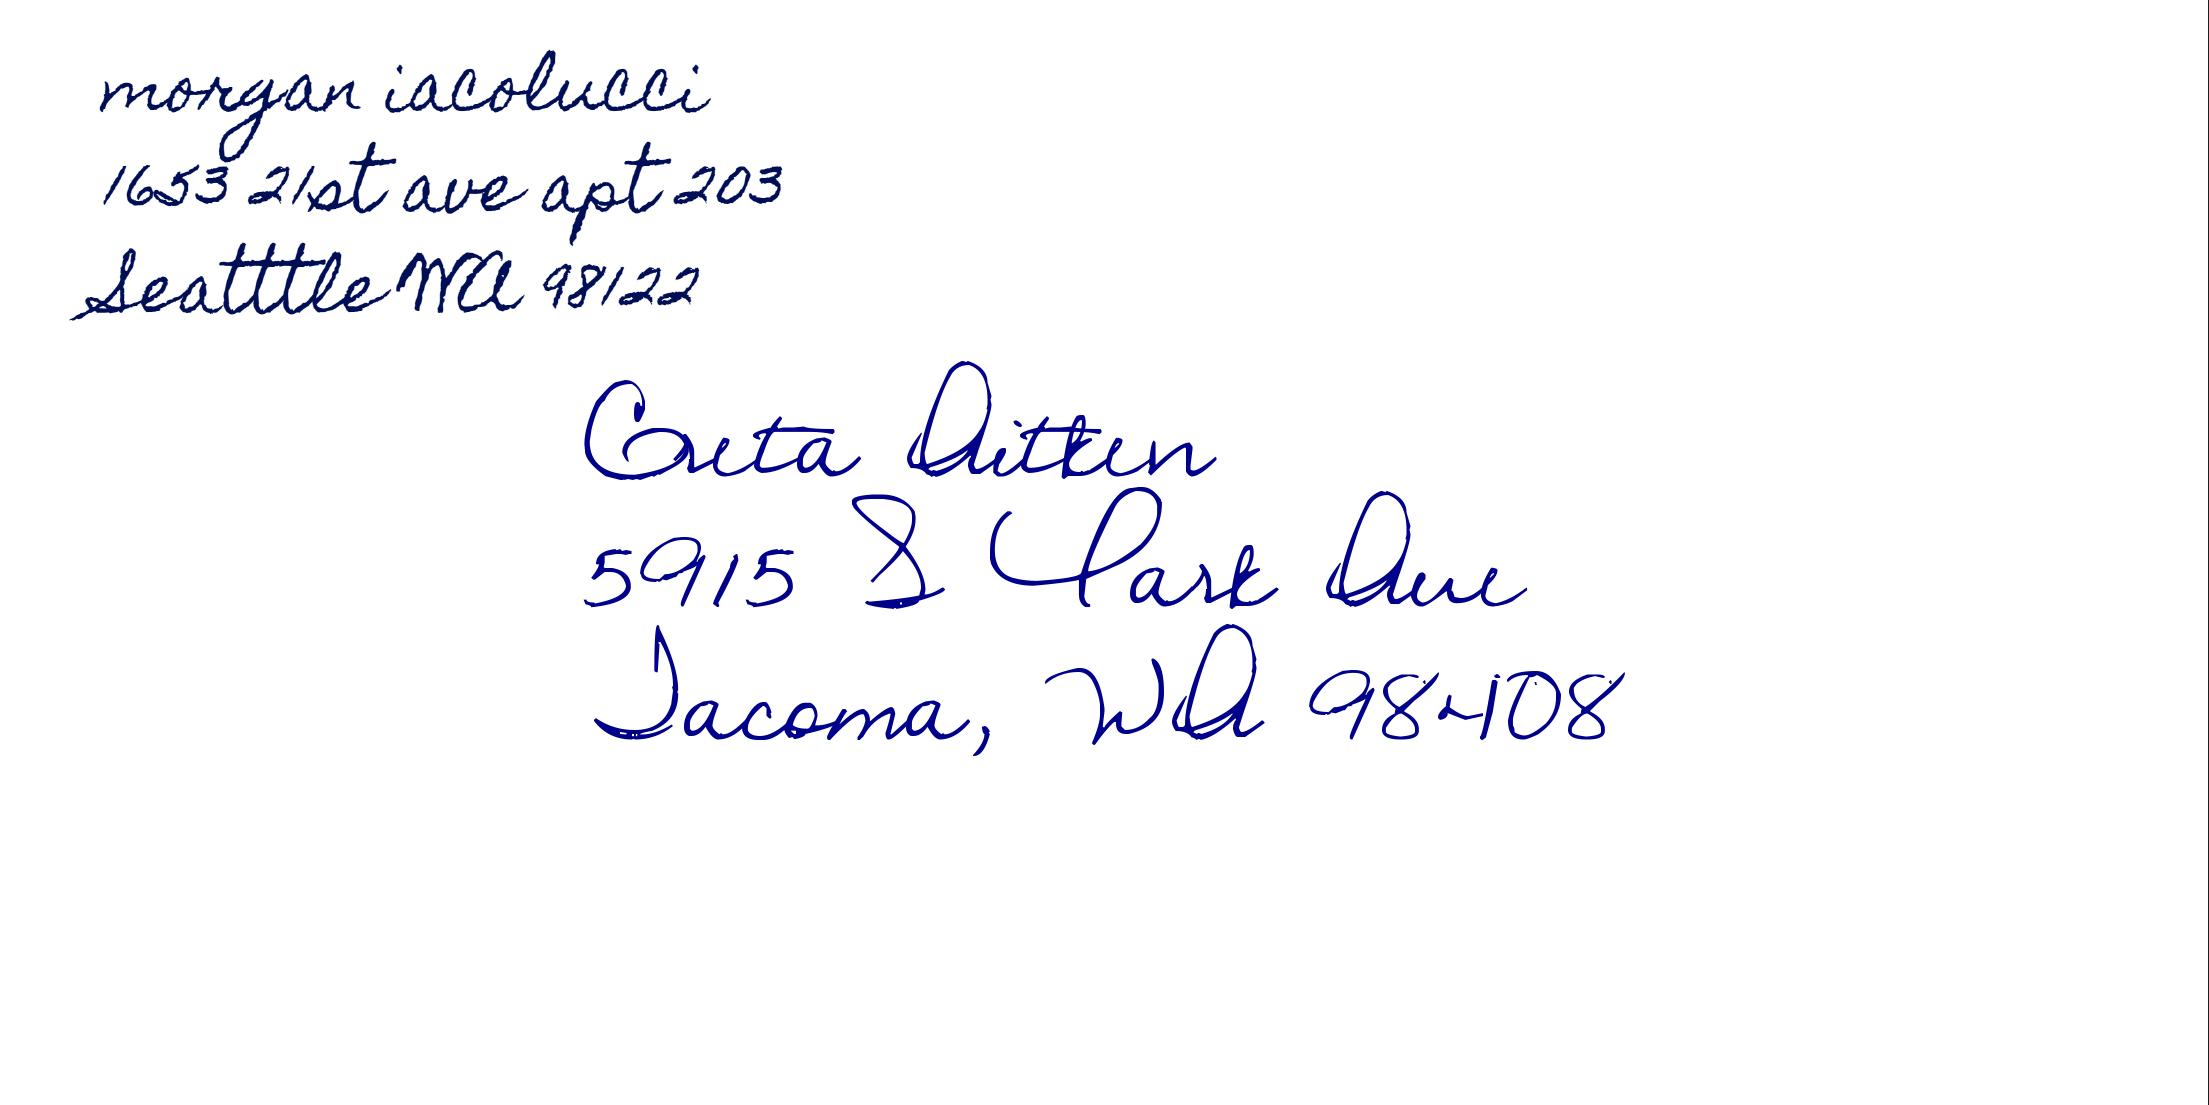 morgan iacolucci
1653 21st ave apt 203
Seatttle WA 98122
Greta Aitken
5915 S Park Ave
Tacoma, WA 98408